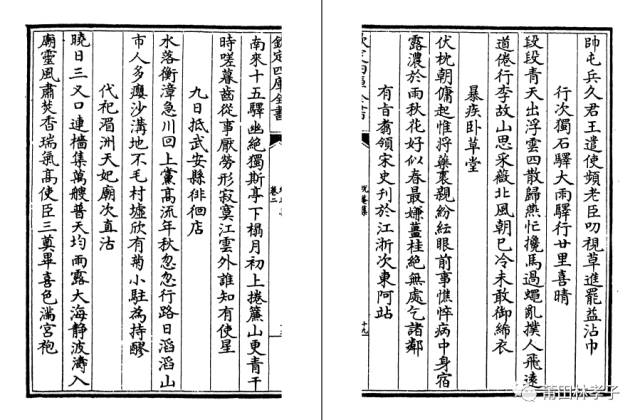 帥屯兵久君王遣使頻老臣叨視草進罷益沾巾
行次獨石驛大雨驛行廿里喜晴
段段青天出浮雲四散歸燕忙攙馬過蠅亂撲人飛遠
道倦行李故山思采薇北風朝已冷未敢御絺衣
暴疾卧草堂
伏枕朝慵起惟將藥裹親紛紜眼前事憔悴病中身宿
露濃於雨秋花好似春最嫌薑桂絕無處乞諸鄰
有旨齎領宋史刊於江浙次東阿站
欽定四庫全書
卷二
南來十五驛幽絕獨斯亭下榻月初上捲簾山更青干
時嗟暮齒從事厭勞形寂寞江雲外誰知有使星
九日抵武安縣徘徊店
水落衡漳急川回上黨高流年秋忽忽行路日滔滔山
市人多癭沙溝地不毛村墟欣有菊小駐為持醪
代祀湄洲天妃廟次直沽
曉日三又口連檣集萬艘普天均雨露大海靜波濤入
廟靈風肅焚香瑞氣高使臣三奠畢喜色滿宮袍
莆田林孝子